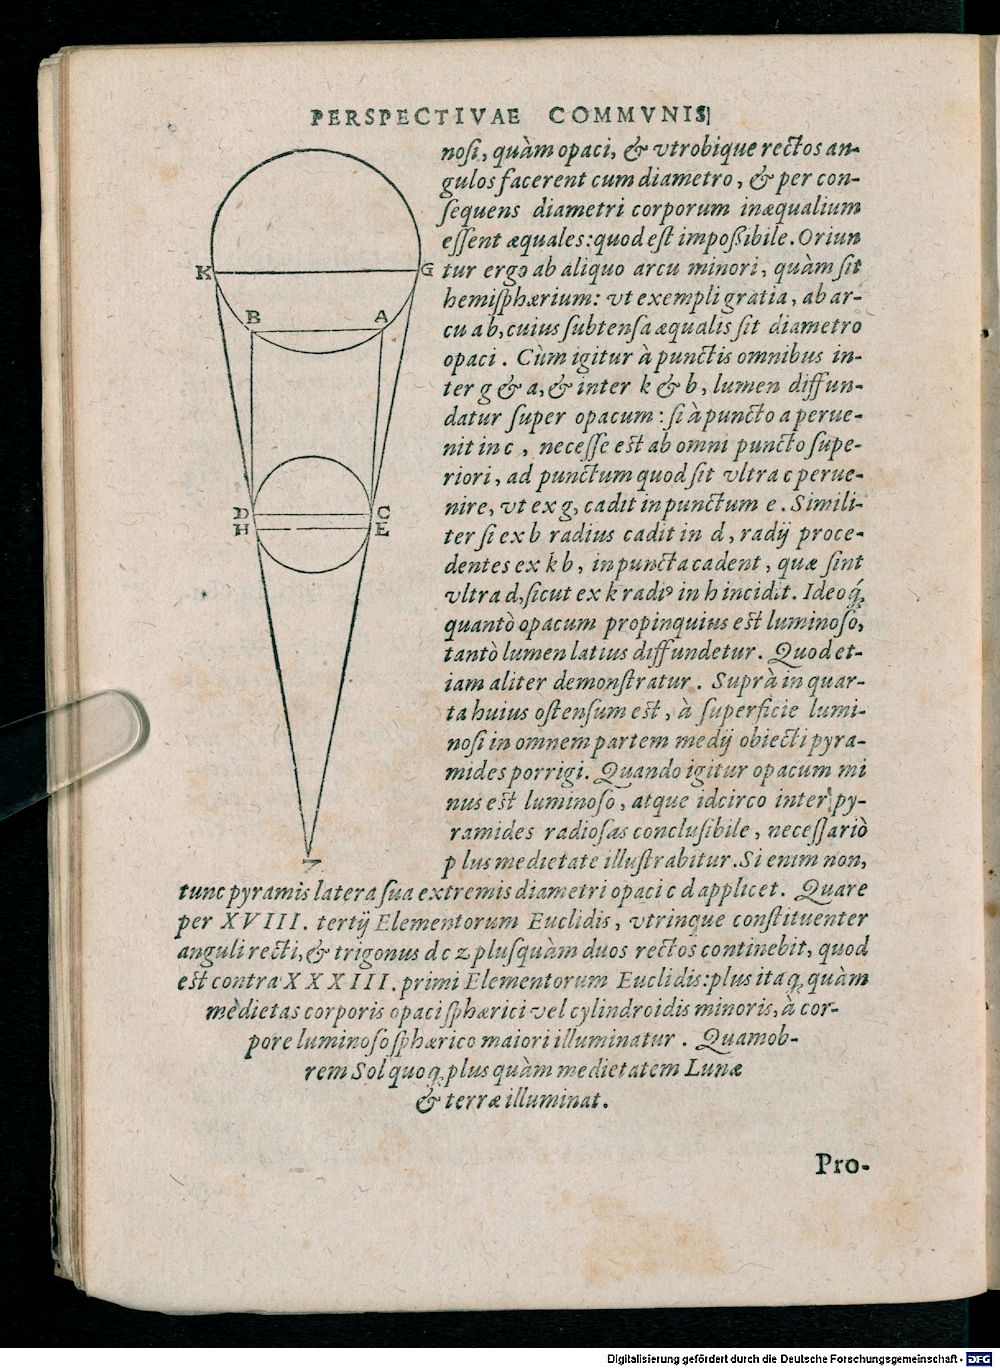 PERSPECTIVAE COMMVNIS
noſi, quàm opaci, & vtrobique rectos an-
gulos facerent cum diametro, & per con-
ſequens diametri corporum inæqualium
eſſent æquales: quod eſt impoßibile. Oriun
tur ergo ab aliquo arcu minori, quàm ſit
hemiſphærium: vt exempli gratia, ab ar-
cu a b, cuius ſubtenſa æqualis ſit diametro
opaci. Cùm igitur à punctis omnibus in-
ter g & a, & inter k & b, lumen diffun-
datur ſuper opacum: ſi à puncto a perue-
nit in c, neceſſe est ab omni puncto ſupe-
riori, ad punctum quod ſit vltra c perue-
nire, vt ex g, cadit in punctum e. Simili-
ter ſi ex b radius cadit in d, radij proce-
dentes ex k b, in puncta cadent, quæ ſint
vltra d, ſicut ex k radiꝰ in h incidit. Ideoq́;
quantò opacum propinquius est luminoſo,
tantò lumen latius diffundetur. Quod et-
iam aliter demonſtratur. Suprà in quar-
ta huius oſtenſum eſt, à ſuperficie lumi-
noſi in omnem partem medij obiecti pyra-
mides porrigi. Quando igitur opacum mi
nus est luminoſo, atque idcirco inter py-
ramides radioſas concluſibile, neceſſariò
plus medietate illuſtrabitur. Si enim non,
tunc pyramis latera ſua extremis diametri opaci c d applicet. Quare
per XVIII. tertij Elementorum Euclidis, vtrinque conſtituenter
anguli recti, & trigonus d c z pluſquàm duos rectos continebit, quod
est contra XXXIII. primi Elementorum Euclidis: plus itaq; quàm
medietas corporis opaci ſphærici vel cylindroidis minoris, à cor-
pore luminoſo ſphærico maiori illuminatur. Quamob-
rem Sol quoq; plus quàm medietatem Lunæ
& terræ illuminat.
Pro-
K G
B A
D C
H E
Z
Digitalisierung gefördert durch die Deutsche Forschungsgemeinschaft - DFG